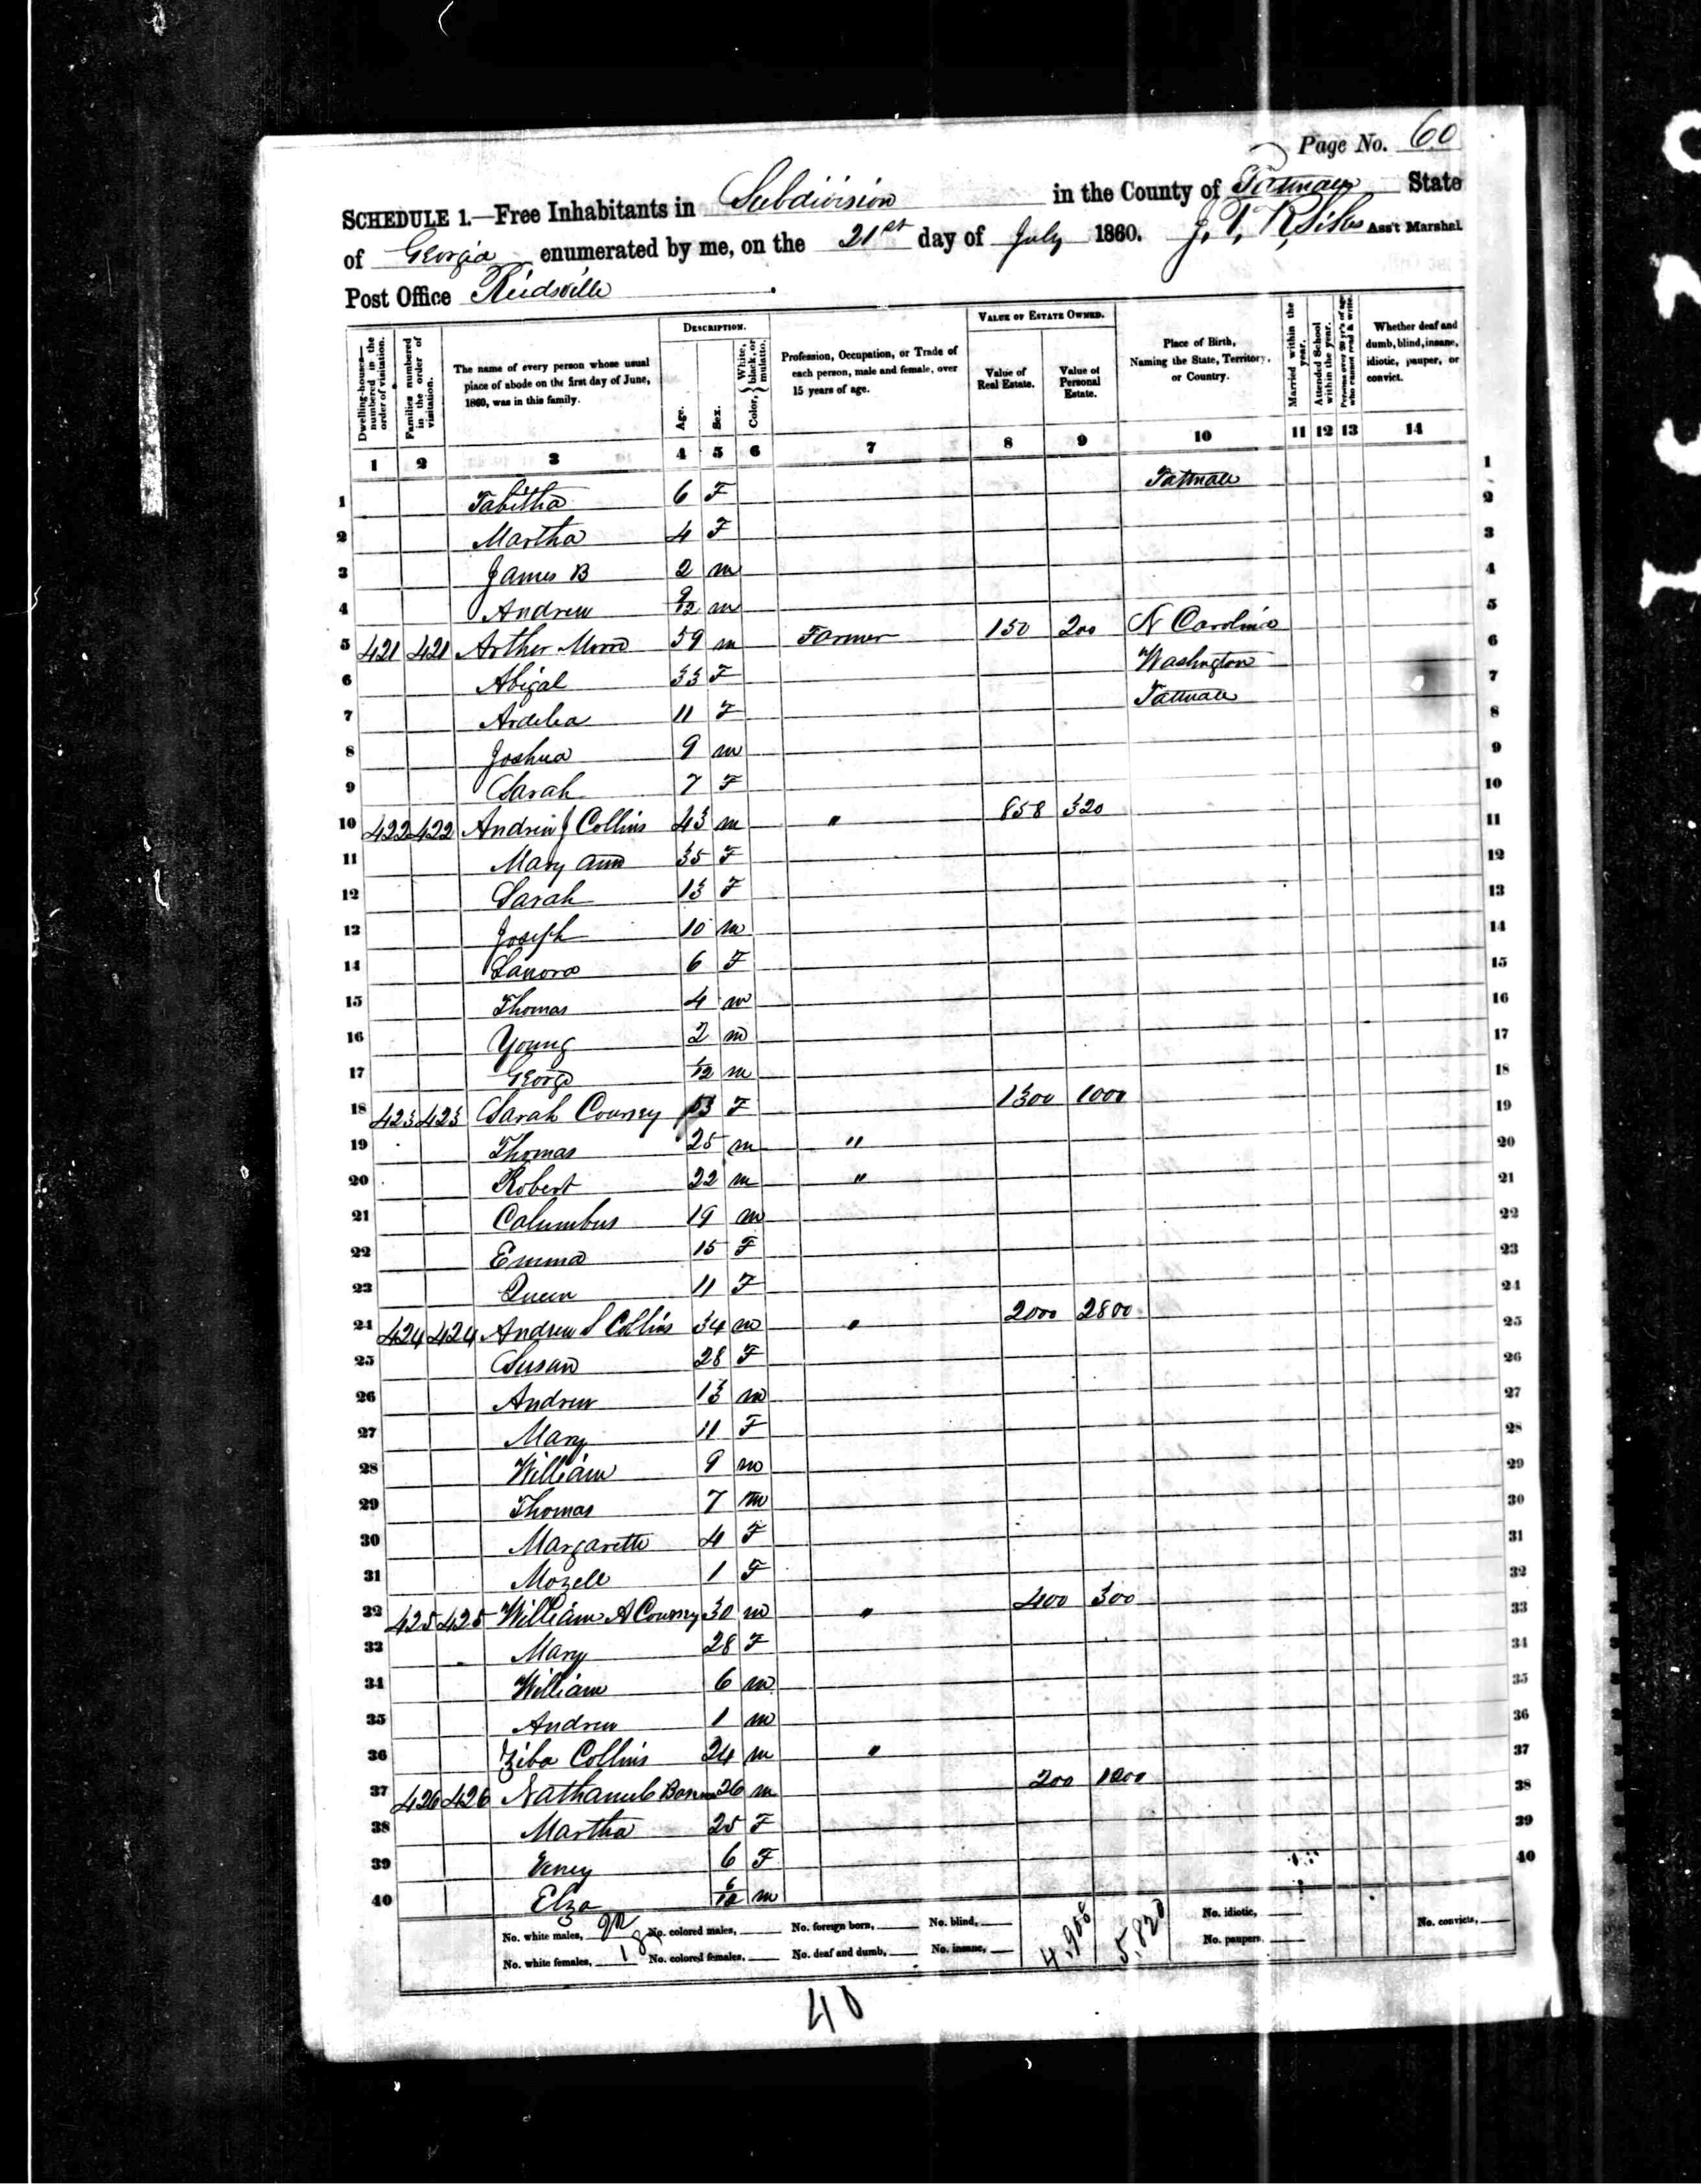 Page No. 60
SCHEDULE 1.—Free Inhabitants in Subdivision in the County of Tattnall State
of Georgia enumerated by me, on the 21st day of July 1860. Ass't Marshal
Post Office Reidsville
DESCRIPTION. VALUE OF ESTATE OWNED.
Dwelling-houses—numbered in the order of visitation. Families numbered in the order of visitation. The name of every person whose usual place of abode on the first day of June, 1860, was in this family. Age. Sex. Color, {White, black, or mulatto. Profession, Occupation, or Trade of each person, male and female, over 15 years of age. Value of Real Estate. Value of Personal Estate. Place of Birth, Naming the State, Territory, or Country. Married within the year. Attended School within the year. Persons over 20 y'rs of age who cannot read & write. Whether deaf and dumb, blind, insane, idiotic, pauper, or convict.
1 2 3 4 5 6 7 8 9 10 11 12 13 14
1 Tabitha 6 F Tattnall 1
2 Martha 4 F 2
3 James B 2 m 3
4 Andrew 9/12 m 4
5 421 421 Arther Moore 59 m Farmer 150 200 N Carolina 5
6 Abigal 33 F Washington 6
7 Ardelia 11 F Tattnall 7
8 Joshua 9 m 8
9 Sarah 7 F 9
10 422 422 Andrew J Collins 43 m " 858 320 10
11 Mary ann 35 F 11
12 Sarah 13 F 12
13 Joseph 10 m 13
14 Lanora 6 F 14
15 Thomas 4 m 15
16 Young 2 m 16
17 George /12 m 17
18 423 423 Sarah Coursey 53 F 1300 1000 18
19 Thomas 25 m " 19
20 Robert 22 m " 20
21 Columbus 19 m 21
22 Emma 15 F 22
23 Queen 11 F 23
24 424 424 Andrew S Collins 34 m " 2000 2800 24
25 Susan 28 F 25
26 Andrew 13 m 26
27 Mary 11 F 27
28 William 9 m 28
29 Thomas 7 m 29
30 Margarette 4 F 30
31 Mozell 1 F 31
32 425 425 William A Coursey 30 m " 400 300 32
33 Mary 28 F 33
34 William 6 m 34
35 Andrew 1 m 35
36 Ziba Collins 24 m " 36
37 426 426 Nathaniel 26 m 200 1200 37
38 Martha 25 F 38
39 6 F 39
40 Elza 6/12 m 40
No. white males, 22 No. colored males, No. foreign born, No. blind, 4,908 5,820 No. idiotic, No. convicts,
No. white females, 18 No. colored females, No. deaf and dumb, No. insane, No. paupers,
40